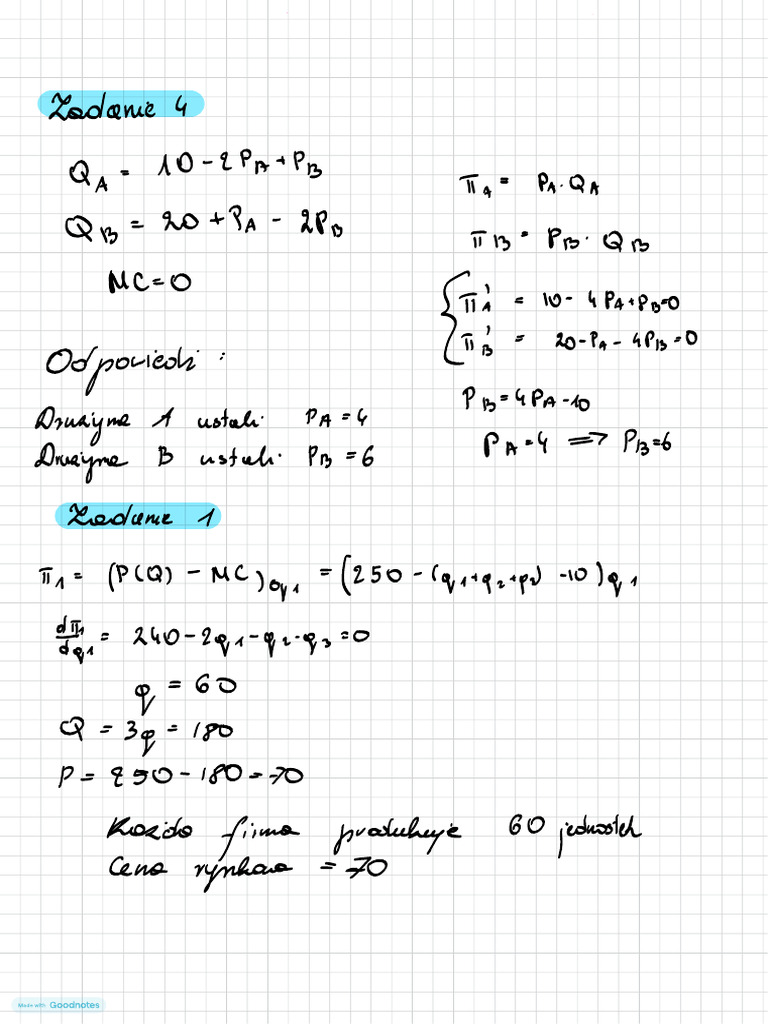 Zadanie 4
Q_A = 10 - 2P_A + P_B
Q_B = 20 + P_A - 2P_B
MC = 0
π_A = P_A · Q_A
π_B = P_B · Q_B
π_A' = 10 - 4P_A + P_B = 0
π_B' = 20 - P_A - 4P_B = 0
P_B = 4P_A - 10
P_A = 4 => P_B = 6
Odpowiedź:
Drużyna A ustali: P_A = 4
Drużyna B ustali: P_B = 6
Zadanie 1
π_1 = (P(Q) - MC)q_1 = (250 - (q_1 + q_2 + p_2) - 10)q_1
dπ_1/dq_1 = 240 - 2q_1 - q_2 - q_3 = 0
q = 60
Q = 3q = 180
P = 250 - 180 = 70
Każda firma produkuje 60 jednostek
Cena rynkowa = 70
Made with Goodnotes